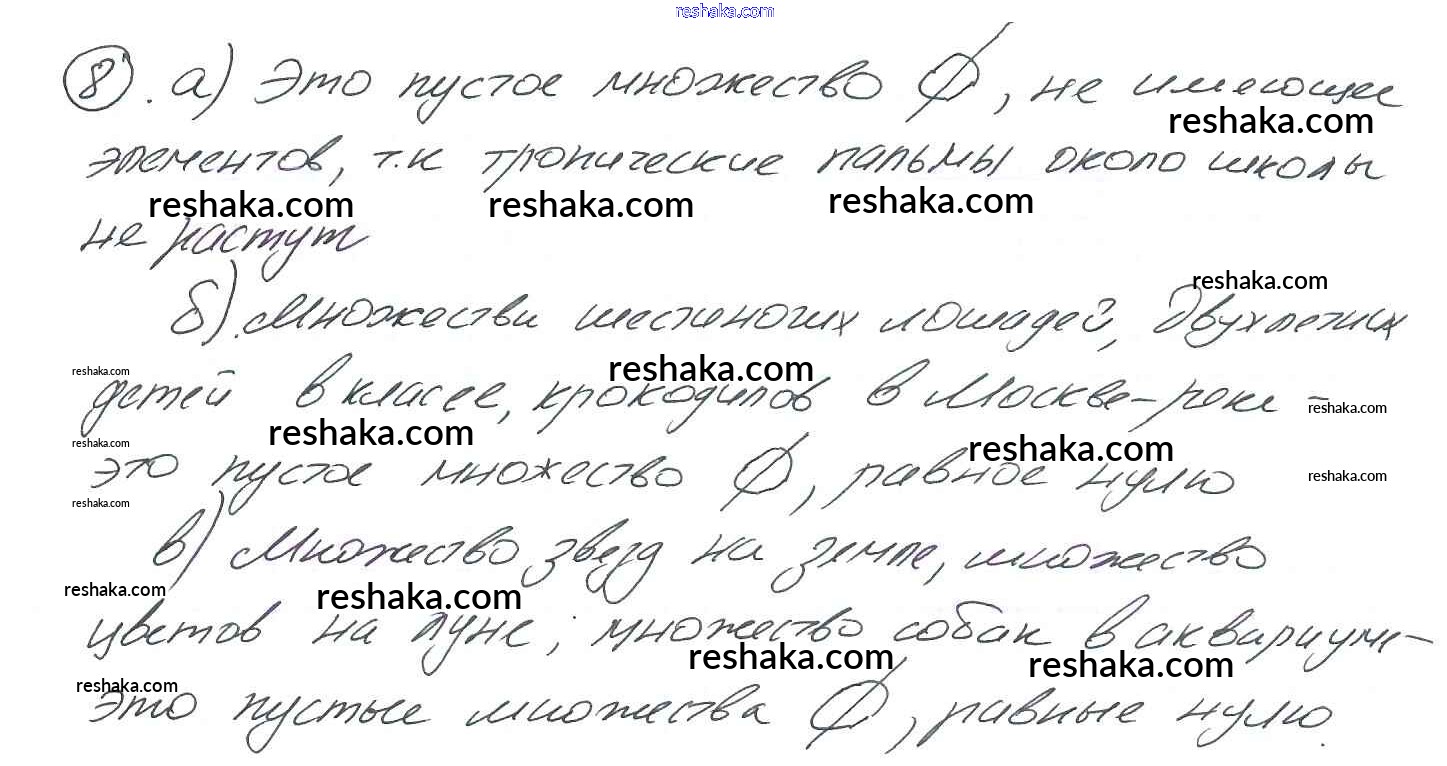 reshaka.com
8. а) Это пустое множество ∅, не имеющее
reshaka.com
элементов, т.к тропические пальмы около школы
reshaka.com reshaka.com reshaka.com
не растут
reshaka.com
б). Множестви шестиногих лошадей, Двухлетних
reshaka.com reshaka.com
детей в классе, крокодилов в Москве-реке -
reshaka.com
reshaka.com reshaka.com reshaka.com
это пустое множество ∅, равное нулю
reshaka.com
reshaka.com
в) Множество звезд на земле, множество
reshaka.com reshaka.com
цветов на луне; множество собак в аквариуме-
reshaka.com reshaka.com
reshaka.com
это пустые множества ∅, равные нулю.